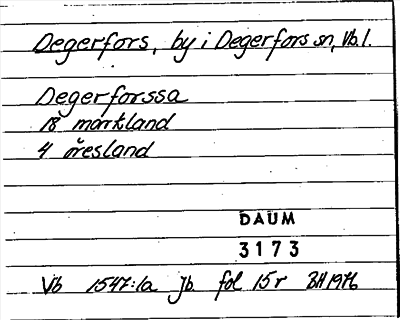 Degerfors, by i Degerfors sn, Vb.l.
Degerforssa
18 markland
4 öresland
DAUM
3173
Vb 1547:1a Jb fol 15r BH 1976